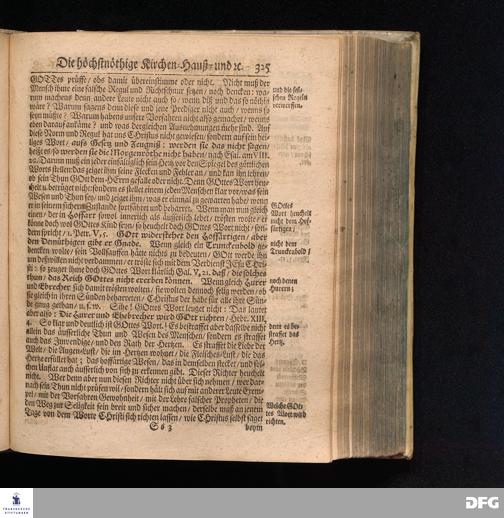 Die höchstnöthige Kirchen-Hauß- und ꝛc. 325
GOTTes prüffe/ obs damit übereinstimme oder nicht. Nicht muß der
Mensch ihme eine falsche Regul und Richtschnur setzen/ noch dencken: wa-
rum machens denn andere Leute nicht auch so/ wenn diß und das so nöthig
wäre? Warum sagens denn diese und jene Prediger nicht auch/ wenns so
seyn müste? Warum habens unsere Vorfahren nicht also gemachet/ wenns
eben darauf ankäme? und was dergleichen Ausnehmungen mehr sind. Auf
diese Norm und Regul hat uns Christus nicht gewiesen/ sondern auf sein hei-
liges Wort/ aufs Gesetz und Zeugniß: werden sie das nicht sagen/
heißt es/ so werden sie die Morgenröthe nicht haben/ nach Esai. am VIII.
20. Darum muß ein jeder einfältiglich sein Hertz vor den Spiegel des göttlichen
Worts stellen: das zeiget ihm seine Flecken und Fehler an/ und kan ihn lehren/
ob sein Thun GOtt dem HErrn gefalle oder nicht. Denn GOttes Wort heu-
chelt u. betrüget nicht: sondern es stellet einem jeden Menschen klar vor/ was sein
Wesen und Thun sey/ und zeiget ihm/ was er einmal zu gewarten habe/ wenn
er in seinem sichern Zustande fortfähret und beharret. Wenn man nun gleich
einen/ der in Hoffart sowol innerlich als äusserlich lebet/ trösten wolte/ er
könne doch wol GOttes Kind seyn/ so heuchelt doch GOttes Wort nicht/ son-
dern spricht/ 1. Pet. V, 5. GOtt widerstehet den Hoffärtigen/ aber
den Demüthigen gibt er Gnade. Wenn gleich ein Trunckenbold ge-
dencken wolte/ sein Vollsauffen hätte nichts zu bedeuten/ GOtt werde ihn
um deßwillen nicht verdammen/ er tröste sich mit dem Verdienst JEsu Chri-
sti: so zeuget ihme doch GOttes Wort klärlich Gal. V, 21. daß/ die solches
thun/ das Reich GOttes nicht ererben können. Wenn gleich Hurer
und Ehbrecher sich damit trösten wolten/ sie wolten dennoch selig werden/ ob
sie gleich in ihren Sünden beharreten/ Christus der habe für alle ihre Sün-
de gnug gethan/ u. s. w. Siehe! GOttes Wort leuget nicht: Das lautet
aber also: Die Hurer und Ehebrecher wird GOtt richten/ Hebr. XIII,
4. So klar und deutlich ist GOttes Wort. Es bestraffet aber dasselbe nicht
allein das äusserliche Thun und Wesen des Menschen/ sondern es straffet
auch das Inwendige/ und den Rath der Hertzen. Es straffet die Liebe der
Welt/ die Augen-Lust/ die im Hertzen wohnet/ die Fleisches-Lust/ die das
Hertz erfüllet hat; das hoffärtige Wesen/ das in demselben stecket/ und sol-
chen Unflat auch äusserlich von sich zu erkennen gibt. Dieser Richter heuchelt
nicht. Wer denn aber nun diesen Richter nicht über sich nehmen/ wer dar-
nach sein Thun nicht prüfen wil/ sondern hält sich auf mit anderer Leute Exem-
pel/ mit der Vorfahren Gewohnheit/ mit der Lehre falscher Propheten/ die
den Weg zur Seligkeit fein breit und sicher machen/ derselbe muß an jenem
Tage von dem Worte Christi sich richten lassen/ wie Christus selbst saget
Ss 3 beym
und die fal-
schen Regeln
verwerffen.
GOttes
Wort heuchelt
nicht dem Hof-
färtigen/
nicht dem
Trunckenbold/
noch denen
Hurern;
denn es be-
straffet das
Hertz.
Welche GOt-
tes Wort wird
richten.
FRANCKESCHE
STIFTUNGEN
DFG